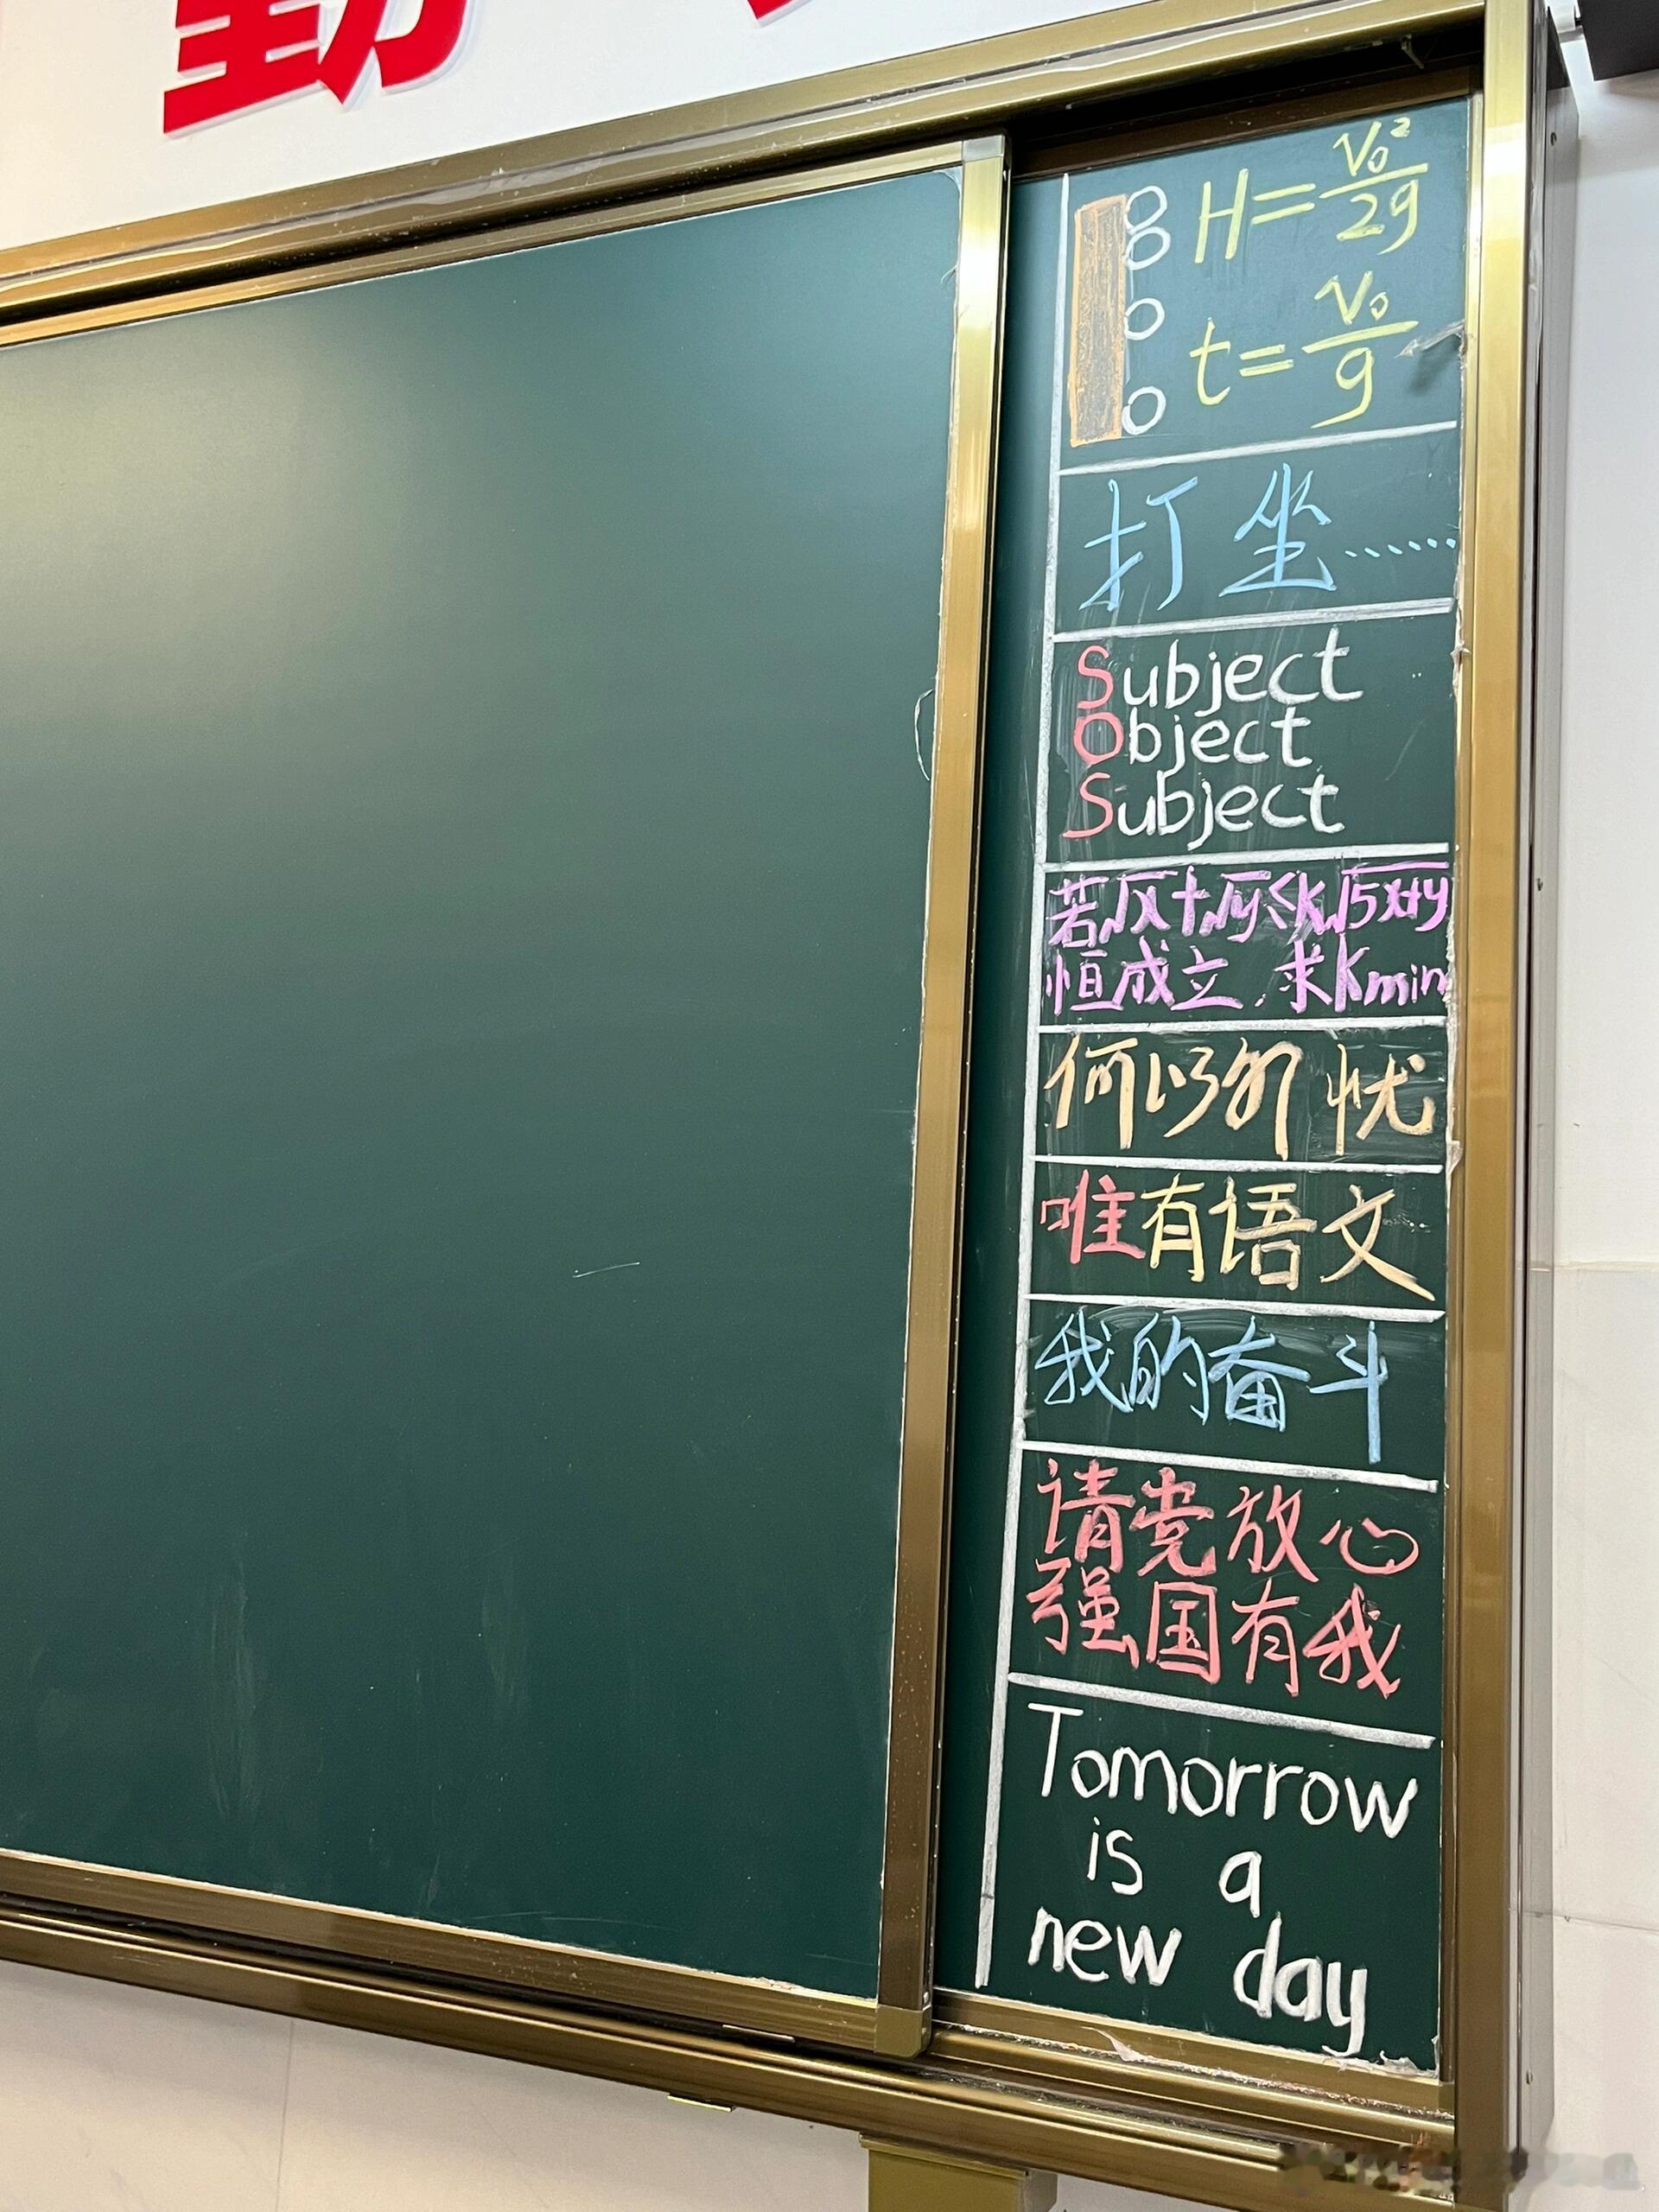 勤
H=v₀²/2g
t=v₀/g
打坐……
Subject
Object
Subject
若√x+√y<k√5x+y
恒成立,求Kmin
何以解忧
唯有语文
我的奋斗
请党放心
强国有我
Tomorrow
is a
new day